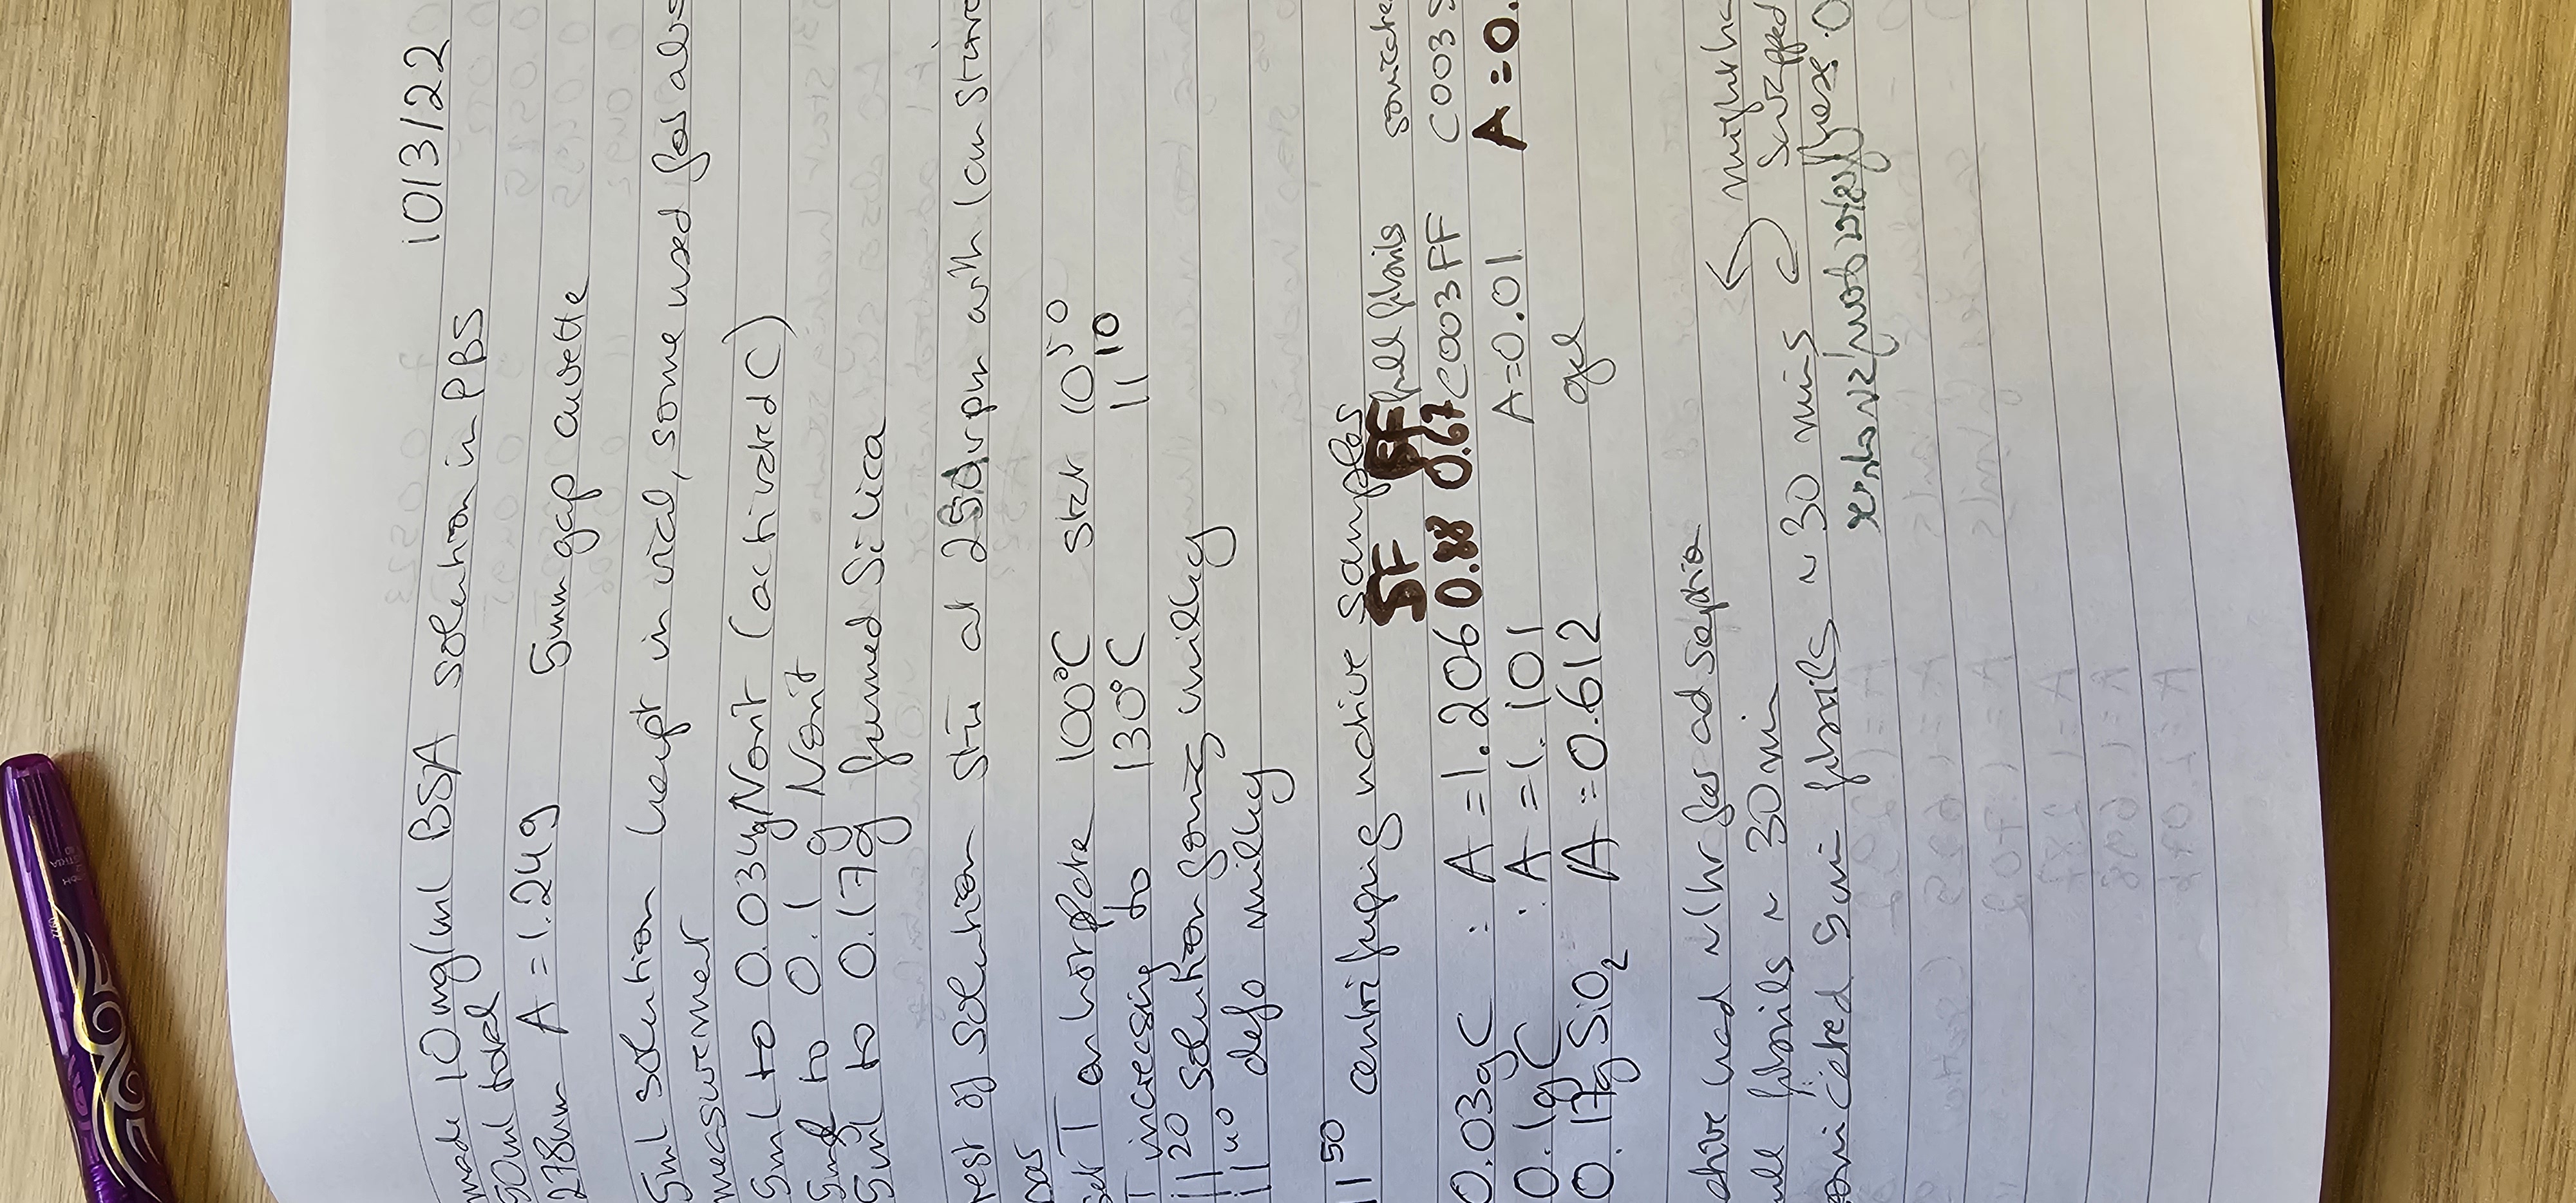 10/3/22
made 10mg/ml BSA solution in PBS
50ml total
278nm A=1.249 5mm gap cuvette
5ml solution kept in vial, some used for abs
measurement
5ml to 0.034g Norit (activated C)
5ml to 0.1 g Norit
5ml to 0.17g fumed Silica
rest of solution stir at 250rpm with (can stirre
set T on hotplate 100°C start 10 50
T increasing to 130°C 11 10
11 20 solution going milky
11 40 defo milky
11 50 centrifuging native samples
SF SF full fibrils sonicate
0.03gC : A=1.206 0.88 0.67 C003FF C003S
0.1gC : A=1.101 A=0.01 A=0.
0.17gSiO2 A=0.612 gel
native had ~1hr for adsorption
full fibrils ~ 30min might ha
sonicated 5min fibrils ~ 30 mins swapped